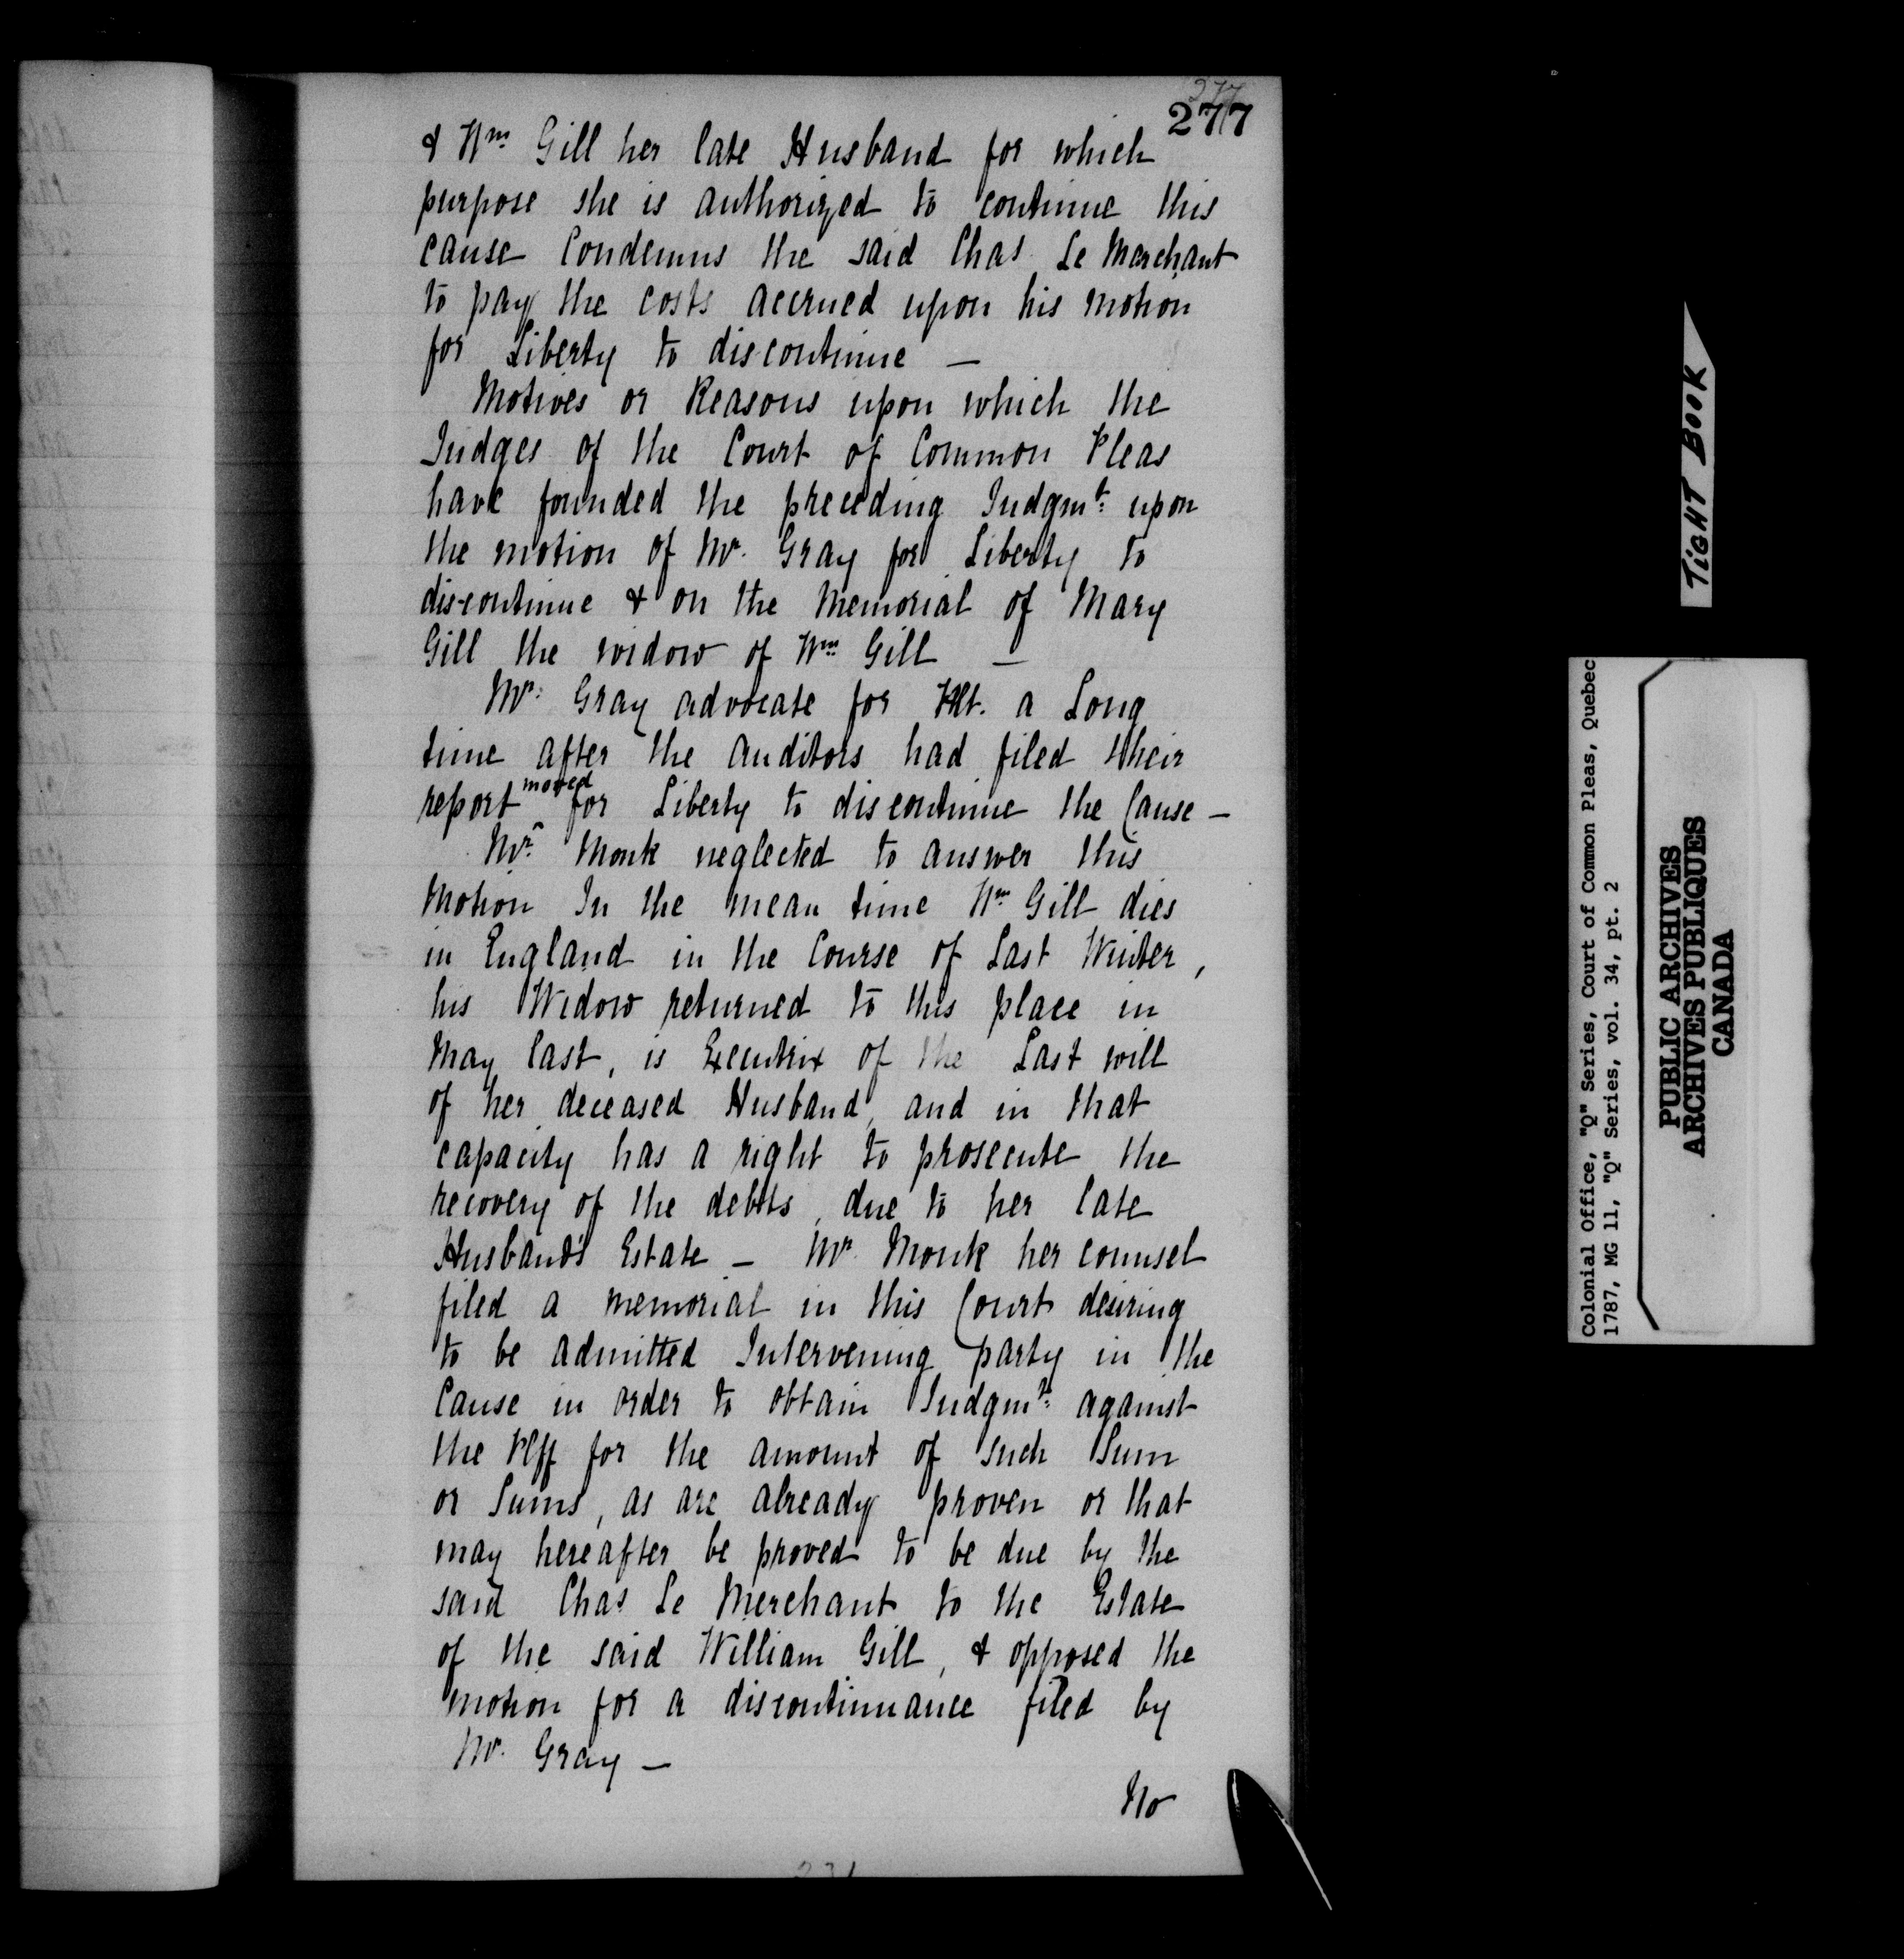 277
277
& Wm. Gill her late Husband for which
purpose she is authorized to continue this
cause Condemns the said Chas Le Marchant
to pay the costs accrued upon his motion
for Liberty to discontinue —
Motives or Reasons upon which the
Judges of the Court of Common Pleas
have founded the preceding Judgmt: upon
the motion of Mr. Gray for Liberty to
discontinue & on the Memorial of Mary
Gill the widow of Wm Gill —
Mr. Gray advocate for Plt. a Long
time after the auditors had filed their
report moved for Liberty to discontinue the Cause —
Mr. Monk neglected to answer this
Motion In the mean time Wm Gill dies
in England in the Course of Last Winter,
his Widow returned to this place in
May last, is Executrix of the Last will
of her deceased Husband, and in that
capacity has a right to prosecute the
recovery of the debts, due to her late
Husband's Estate — Mr Monk her counsel
filed a memorial in this Court desiring
to be admitted Intervening party in the
Cause in order to obtain Judgmt: against
the Plff for the amount of such Sum
or Sums, as are already proven or that
may hereafter be proved to be due by the
said Chas Le Merchant to the Estate
of the said William Gill, & opposed the
motion for a discontinuance filed by
Mr. Gray —
No
231
TIGHT BOOK
Colonial Office, "Q" Series, Court of Common Pleas, Quebec
1787, MG 11, "Q" Series, vol. 34, pt. 2
PUBLIC ARCHIVES
ARCHIVES PUBLIQUES
CANADA